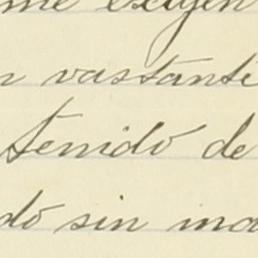 me exigen
n vastante
tenido de
do sin ma